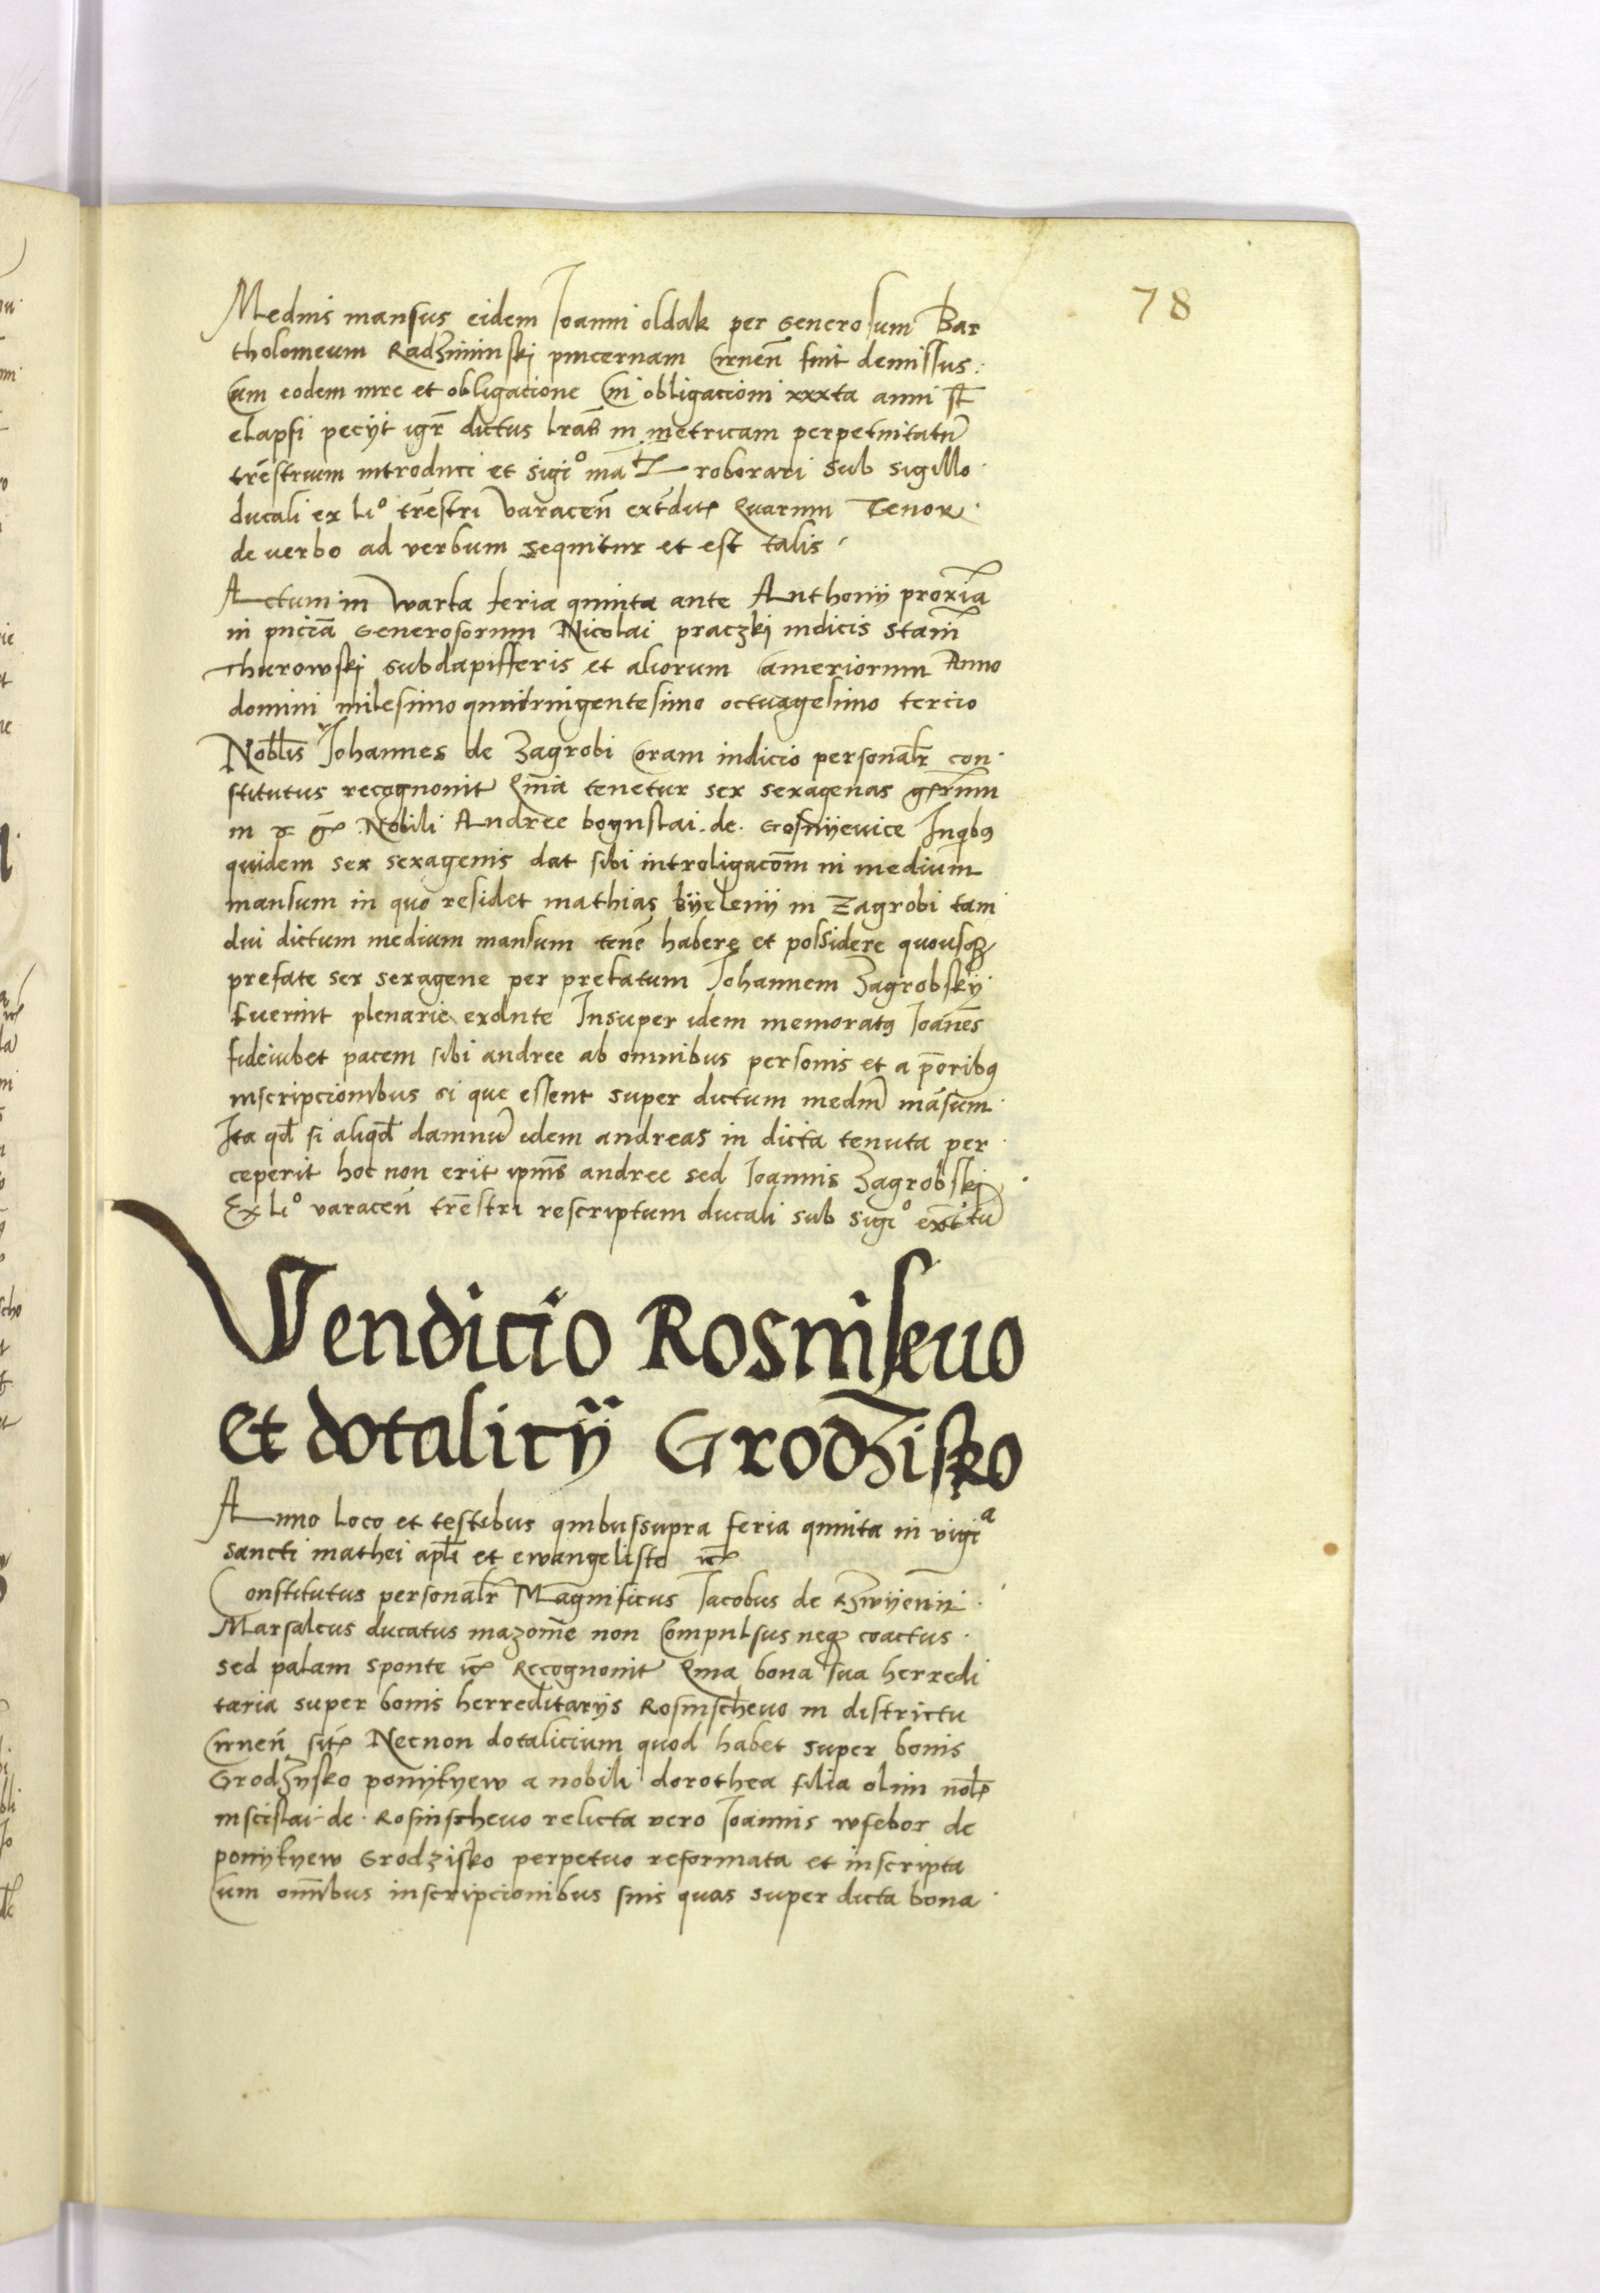 78
Medius mansus eidem Joanni oldak per Generosum Bar
tholomeum Radziminski pincernam Cirnen̄ fuit demissus.
Cum eodem iure et obligacione Cui obligacioni xxxta anni st̄
elapsi pecijt igr̄ dictus lrās in metricam perpetuitatū
trēstrium introduci et sigi° roborari sub sigillo
ducali ex li° trēstri varacen̄ Quarum Tenor
de uerbo ad verbum sequitur et est talis
Actum in Warka feria quinta ante Anthonij proxīa
in pn̄ciā Generosorum Nicolai praczki iudicis Stanī
Thurowski subdapifferis et aliorum Cameriorum Anno
domini milesimo quadringentesimo octuagesimo tercio
Nobl̄is Johannes de Zagrobi Coram iudicio personalr̄ con
stitutus recognouit Quia tenetur sex sexagenas
in Nobili Andree bogustai de Gosnijewice Inqbus
quidem sex sexagenis dat sibi introligacōm in medium
mansum in quo residet mathias bijelenij in Zagrobi tam
diu dictum medium mansum tenē habere et possidere quousq
prefate sex sexagene per prefatum Johannem Zagrobskij
fuerint plenarie exolute Insuper idem memoratus Joānes
fideiubet pacem sibi andree ab omnibus personis et a p̄oribus
inscripcionibus si que essent super dictum mediū mānsum
Ita qd̄ si aliqd̄ damnū idem andreas in dicta tenuta per
ceperit hoc non erit ipīus andree sed Joannis Zagrobski
Ex li° varacen̄ trēstri rescriptum ducali sub sigi°
Vendicio Rosniseuo
et dotalicij Grodzisko
Anno loco et testibus quibussupra feria quinta in vigia
sancti mathei apl̄i et ewangeliste
Constitutus personalr̄ Magnificus Jacobus de
Marsalcus ducatus mazouie non Compulsus neq coactus
sed palam sponte Recognouit Quia bona sua herredi
taria super bonis herreditarijs Rosnischeuo in districtu
Cirnen̄ Necnon dotalicium quod habet super bonis
Grodzysko ponijkyew a nobili dorothea filia olim
mscistai de Rosnischeuo relicta vero Joannis wsebor de
ponijkyew Grodzisko perpetuo reformata et inscripta
Cum om̄ibus inscripcionibus suis quas super dicta bona